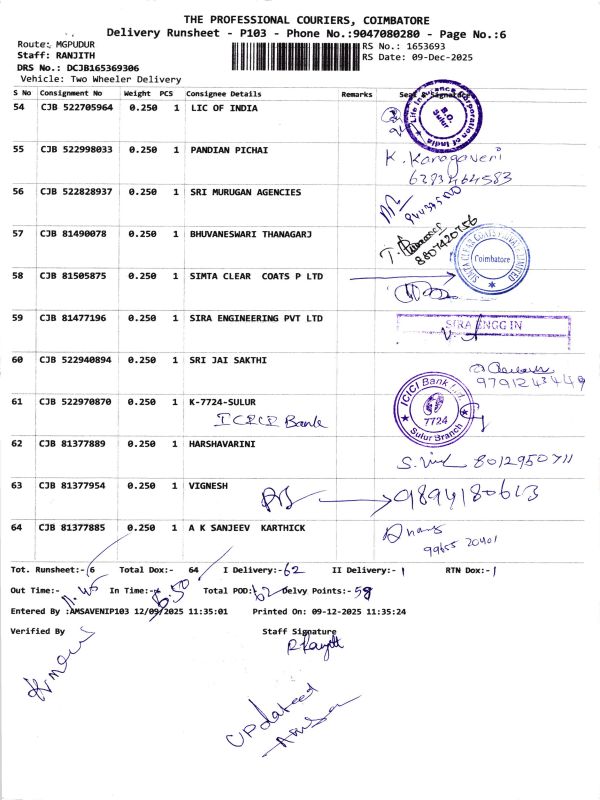 THE PROFESSIONAL COURIERS, COIMBATORE
Delivery Runsheet - P103 - Phone No.:9047080280 - Page No.:6
Route: MGPUDUR RS No.: 1653693
Staff: RANJITH RS Date: 09-Dec-2025
DRS No.: DCJB165369306
Vehicle: Two Wheeler Delivery
S No Consignment No Weight PCS Consignee Details Remarks Seal & Signature
54 CJB 522705964 0.250 1 LIC OF INDIA
Life Insurance Corporation of India
B.O.
Sulur
55 CJB 522998033 0.250 1 PANDIAN PICHAI
K. Karagaveri
6293464583
56 CJB 522828937 0.250 1 SRI MURUGAN AGENCIES
57 CJB 81490078 0.250 1 BHUVANESWARI THANAGARJ
8807420756
58 CJB 81505875 0.250 1 SIMTA CLEAR COATS P LTD
SIMTA CLEAR COATS PRIVATE LIMITED
Coimbatore
59 CJB 81477196 0.250 1 SIRA ENGINEERING PVT LTD
SIRA ENGG IN
60 CJB 522940894 0.250 1 SRI JAI SAKTHI
9791243449
61 CJB 522970870 0.250 1 K-7724-SULUR
ICICI Bank
ICICI Bank Ltd.
7724
Sulur Branch
62 CJB 81377889 0.250 1 HARSHAVARINI
8012950711
63 CJB 81377954 0.250 1 VIGNESH
9894180613
64 CJB 81377885 0.250 1 A K SANJEEV KARTHICK
99655 20401
Tot. Runsheet:- 6 Total Dox:- 64 I Delivery:-62 II Delivery:-1 RTN Dox:-1
Out Time:- 11.45 In Time:- 6.50 Total POD:62 Delvy Points:-58
Entered By :AMSAVENIP103 12/09/2025 11:35:01 Printed On: 09-12-2025 11:35:24
Verified By Staff Signature
Updated